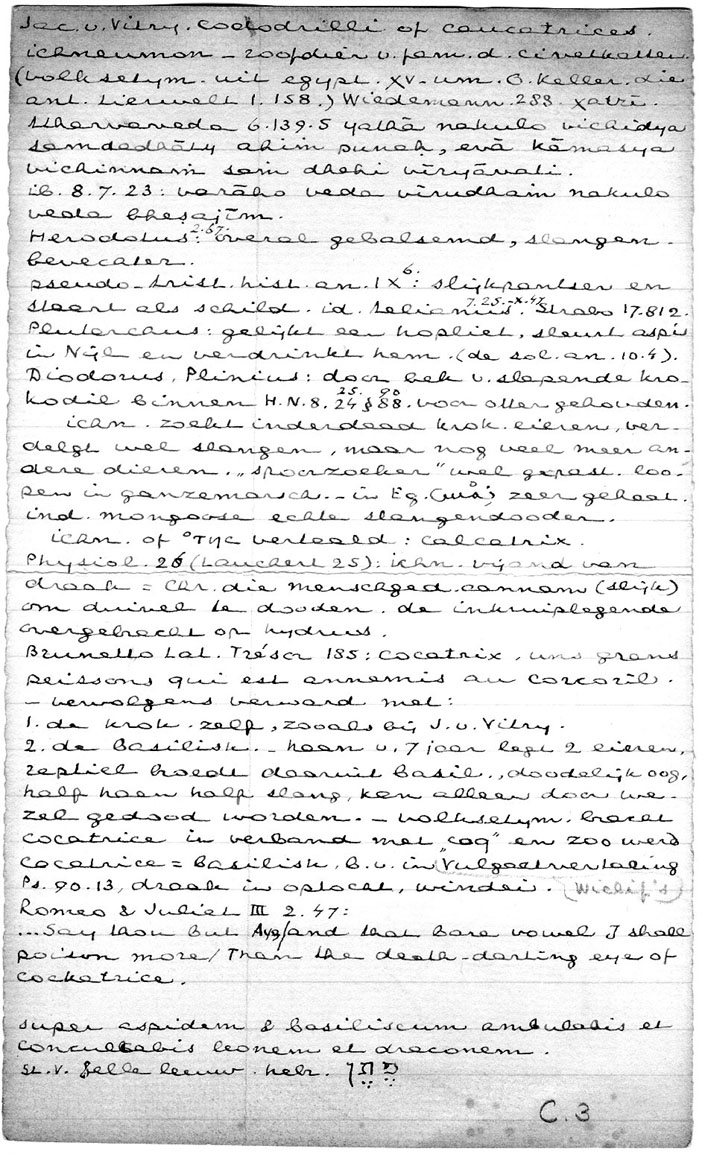 Jac. v. Vitry. Cocodrilli of caucatrices.
ichneumon – roofdier v. fam. d. civetkatten
(volksetym. uit egypt. XV-um. O. Keller. die
ant. tierwelt 1.158.) Wiedemann. 288. χatri.
Atharvaveda 6.139.5 yathā nakulo vichidya
samdadhāty ahim punaḥ, evā kāmasya
vichinnam sam dhehi vīryāvati.
ib. 8.7.23: varāho veda vīrudham nakulo
veda bheṣajīm.
Herodotus 2.67: overal gebalsemd, slangen-
bevechter.
pseudo-Arist. hist. an. IX 6: slijkpantser en
staart als schild. id. Aelianus 7.25.-X.47. Strabo 17.812.
Plutarchus: gelijkt een hopliet, steurt aspis
in Nijl en verdrinkt hem. (de sol. an. 10.4).
Diodorus, Plinius: door bek v. slapende kro-
kodil binnen H.N. 8. 24 25. § 88 90. voor otter gehouden.
ichn. zoekt inderdaad krok. eieren, ver-
delgt wel slangen, maar nog veel meer an-
dere dieren. „spoorzoeker" wel gepast. loo-
pen in ganzemarsch. – in Eg. zeer gehaat.
ind. mongoose echte slangendooder.
ichn. of vertaald: calcatrix.
Physiol. 26 (Lauchert 25): ichn. vijand van
draak = Chr. die menschged. aannam (slijk)
om duivel te dooden. de inkruiplegende
overgebracht op hydrus.
Brunetto Lat. Trésor 185: cocatrix, uns grans
peissons qui est annemis au corcoril.
– vervolgens verward met:
1. de krok. zelf, zooals bij J. v. Vitry.
2. de Basilisk. – haan v. 7 jaar legt 2 eieren,
reptiel broedt daaruit basil., doodelijk oog,
half haan half slang, kan alleen door we-
zel gedood worden. – volksetym. bracht
cocatrice in verband met „coq" en zoo werd
cocatrice = basilisk, b.v. in Vulgaatvertaling
Ps. 90.13, draak in optocht, windei. (Wiclif's)
Romeo & Juliet III 2.47:
...Say thou but Aye/and that bare vowel I shall
poison more/Than the death-darting eye of
cockatrice.
super aspidem & basiliscum ambulabis et
conculcabis leonem et draconem.
St. V. felle leeuw. hebr. פתן
C.3